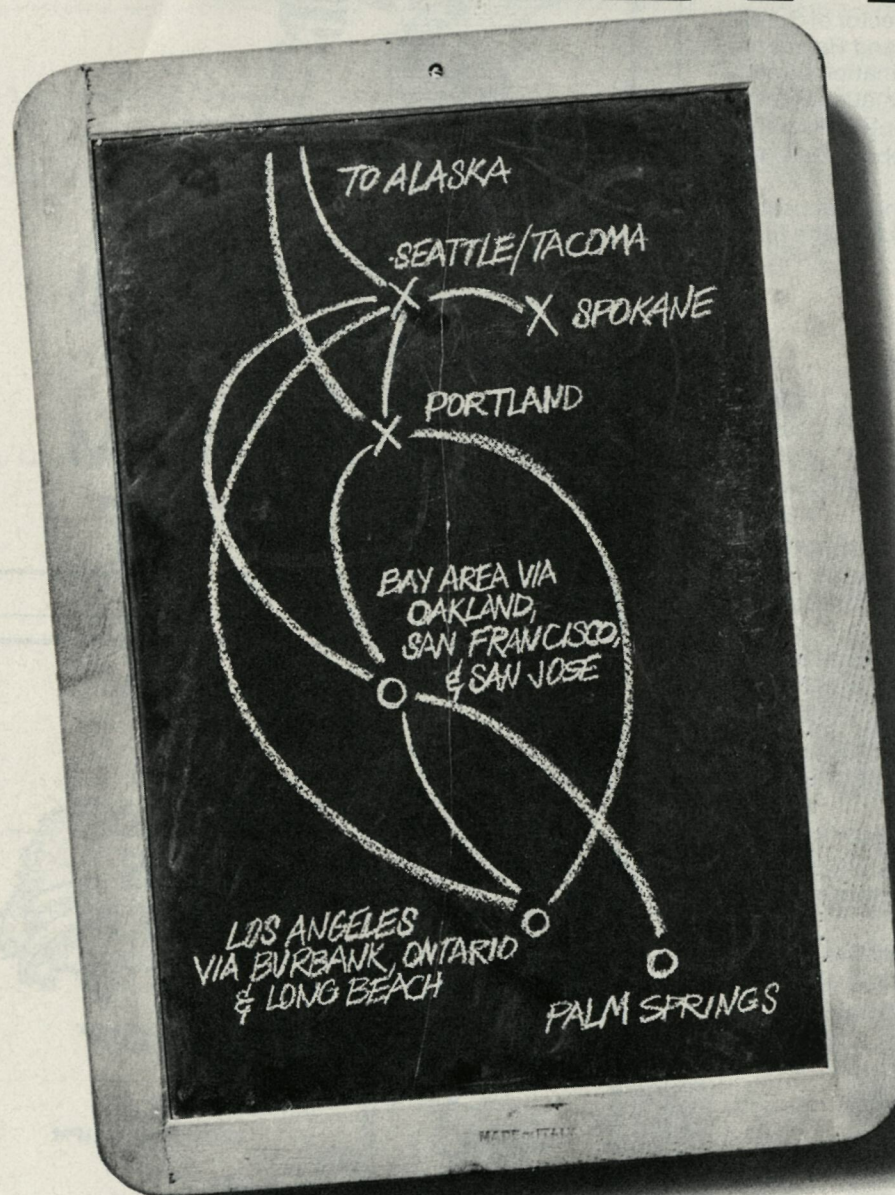 TO ALASKA
SEATTLE/TACOMA
SPOKANE
PORTLAND
BAY AREA VIA
OAKLAND,
SAN FRANCISCO,
& SAN JOSE
LOS ANGELES
VIA BURBANK, ONTARIO
& LONG BEACH
PALM SPRINGS
MADE IN ITALY